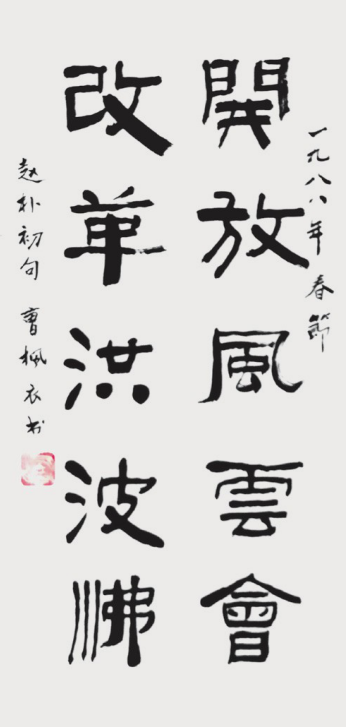 一九八八年春節
開放風雲會
改革洪波沸
趙朴初句 曹楓衣书